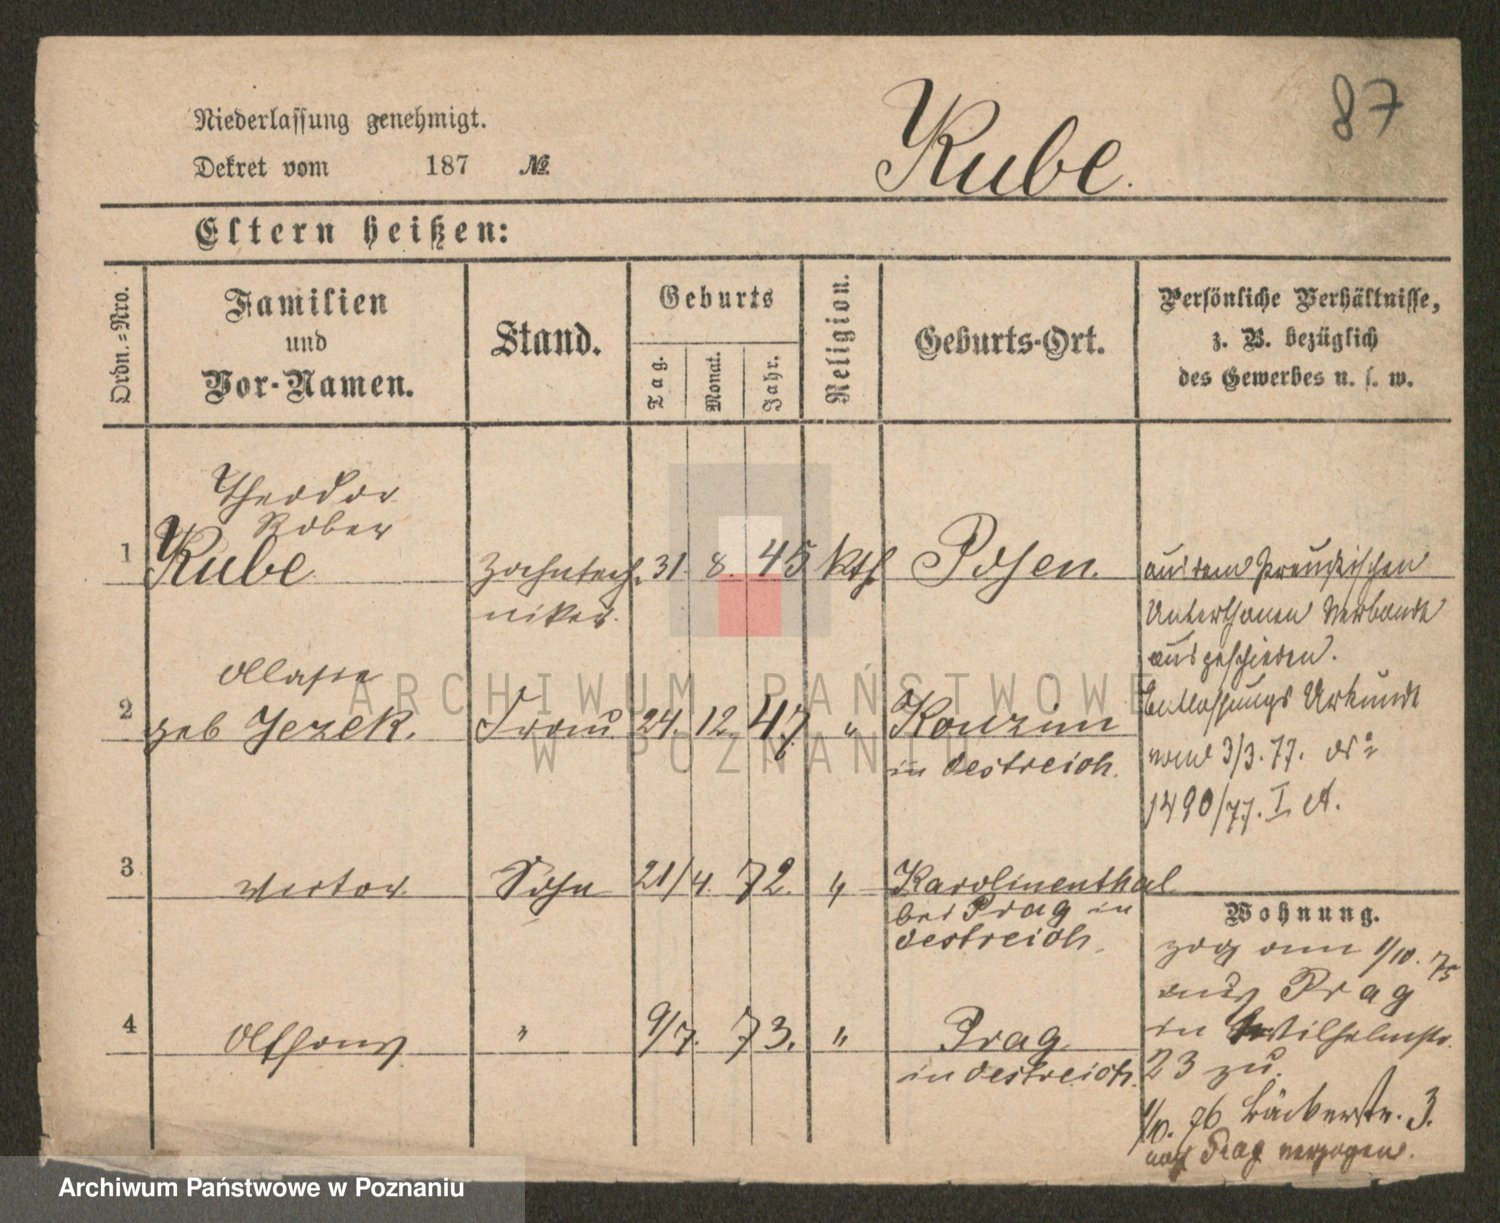 87
Niederlassung genehmigt.
Dekret vom 187 №
Kube.
Eltern heißen:
Ordn.=Nro.
Familien und Vor-Namen.
Stand.
Geburts
Tag.
Monat.
Jahr.
Religion.
Geburts-Ort.
Persönliche Verhältnisse,
z. B. bezüglich
des Gewerbes u. s. w.
Theodor
Rober
1 Kube Zahntech= 31. 8. 45 kth Posen.
niker.
aus dem Preußischen
Unterthanen Verbande
ausgeschieden.
Entlassungs Urkunde
vom 3/3. 77. No
1490/77. I. A.
2 geb Jezek. Frau 24. 12. 47. " Konzim
in Oestreich.
3 Victor Sohn 21/4. 72. " Karolinenthal
bei Prag in
Oestreich.
4 Alfons " 9/7. 73. " Prag
in Oestreich.
Wohnung.
zog am 1/10. 75
aus Prag
in Wilhelmstr.
23 zu.
1/10. 76 Bäckerstr. 3.
nach Prag verzogen.
ARCHIWUM PAŃSTWOWE
W POZNANIU
Archiwum Państwowe w Poznaniu